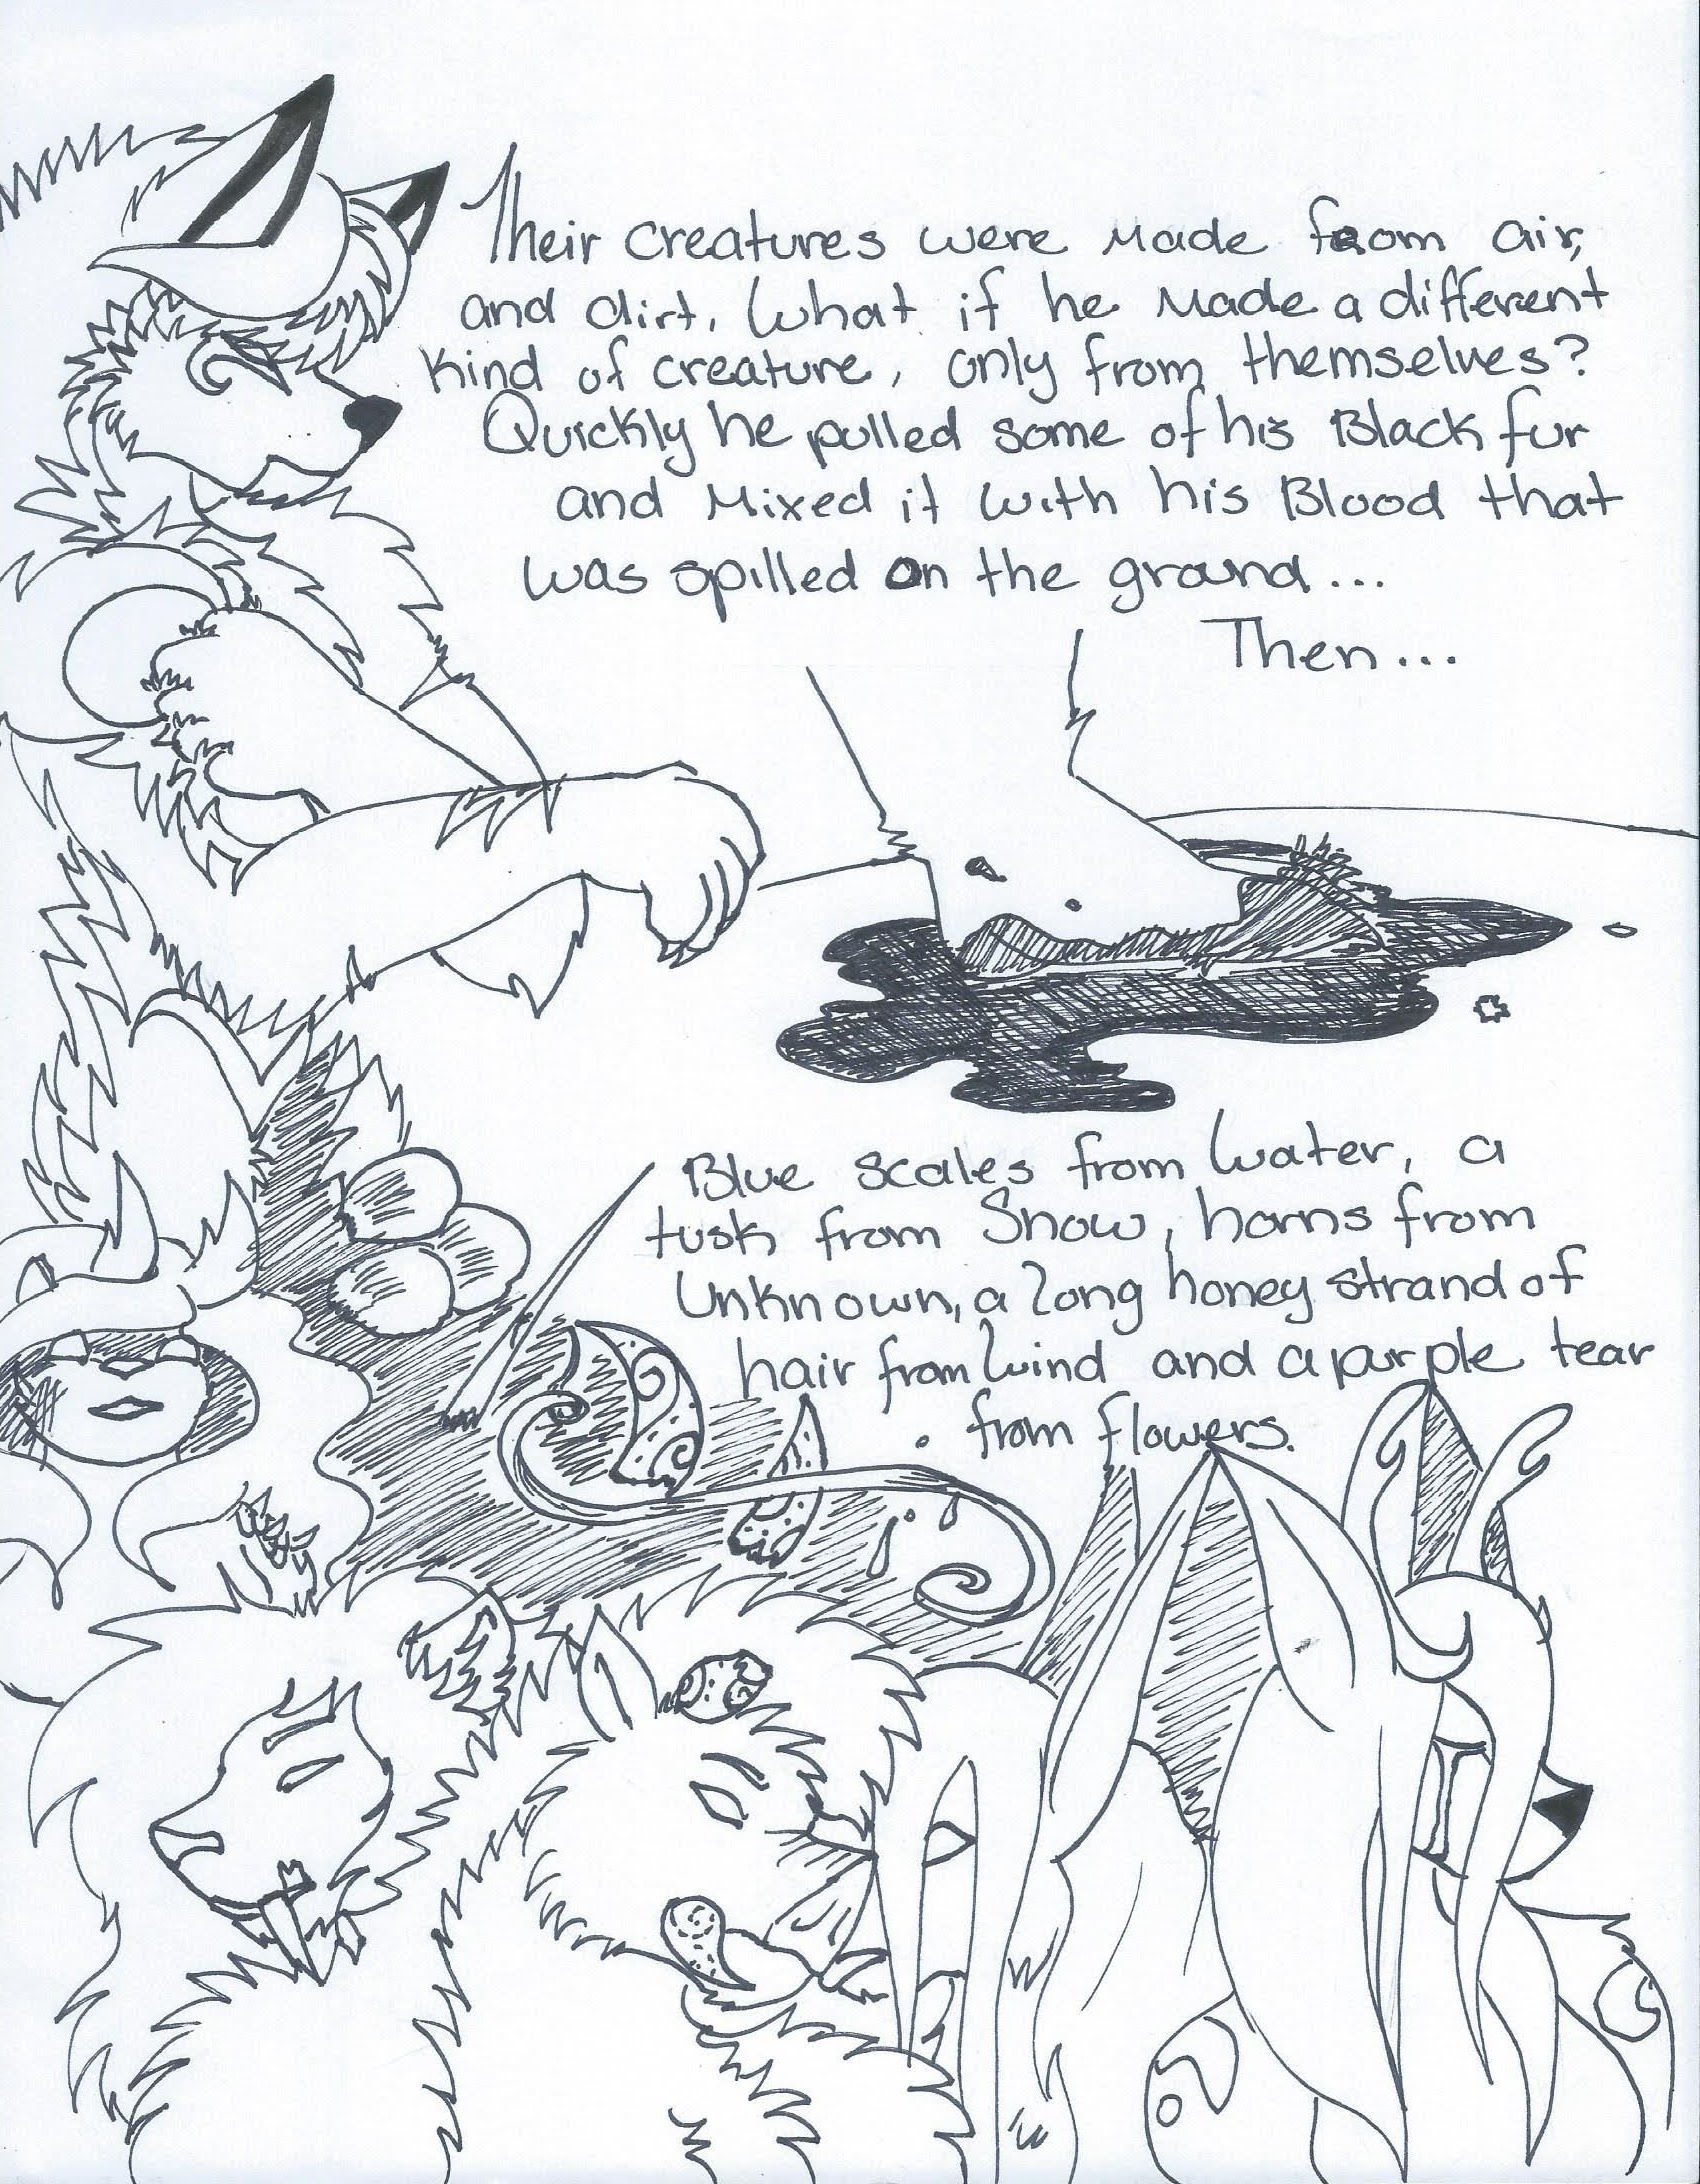 Their creatures were made from air,
and dirt. What if he made a different
kind of creature, only from themselves?
Quickly he pulled some of his Black fur
and mixed it with his Blood that
was spilled on the ground...
Then...
Blue scales from Water, a
tusk from Snow, horns from
Unknown, a long honey strand of
hair from Wind and a purple tear
from flowers.